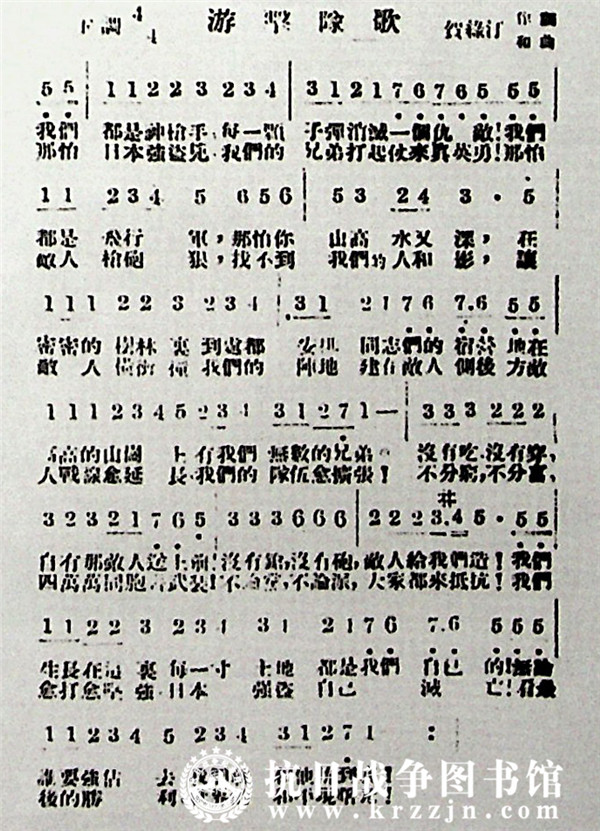 调 4/4 游擊隊歌 賀綠汀 作詞和曲
5 5 1 1 2 2 3 2 3 4 3 1 2 1 7 6 7 6 5 5 5
我們 都是神槍手，每一顆 子彈消滅一個仇 敵！我們
那怕 日本強盜兇，我們的 兄弟打起仗來真英勇！那怕
1 1 2 3 4 5 6 5 6 5 3 2 4 3 · 5
都是 飛行 軍，那怕你 山高 水又 深，在
敵人 槍砲 狠，找不到 我們的人和影，讓
1 1 1 2 2 3 2 3 4 3 1 2 1 7 6 7.6 5 5
密密的 樹林 裏 到處都 安排 同志們的 宿營 地在
敵 人 橫衝 撞 我們的 陣地 建在敵人 側後 方敵
1 1 1 2 3 4 5 2 3 4 3 1 2 7 1 — 3 3 3 2 2 2
高高的山崗 上有我們 無數的兄弟。 沒有吃，沒有穿，
人戰線愈延 長，我們的 隊伍愈擴張！ 不分窮，不分富，
3 2 3 2 1 7 6 5 3 3 3 6 6 6 2 2 2 #3.4 5 · 5 5
自有那敵人送上前！沒有鎗，沒有砲，敵人給我們造！我們
四萬萬同胞 武裝！不 黨，不論派，大家都來抵抗！我們
1 1 2 2 3 2 3 4 3 1 2 1 7 6 7.6 5 5 5
生長在這 裏 每一寸 土地 都是我們 自己 的！無論
愈打愈堅 強，日本 強盜 自己 滅 亡！看最
1 1 2 3 4 5 2 3 4 3 1 2 7 1 :
誰要強佔 去 他 到底！
後的勝 利
抗日战争图书馆
www.krzzjn.com